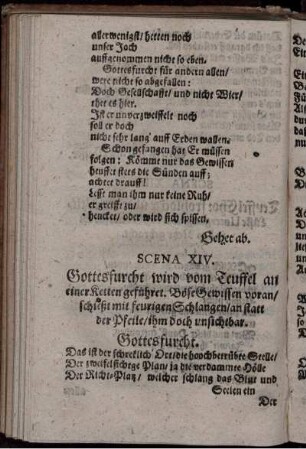 allerwenigst / hetten noch
unser Joch
auffgenommen nicht so eben.
Gottesfurcht für andern allen /
were nicht so abgefallen:
Doch Gesellschafft / und nicht Wier /
thet es hier.
Ist er unverzweiffelt noch
soll er doch
nicht sehr lang' auff Erden wallen.
Schon gefangen hat Er müssen
folgen: Kömmt nur das Gewissen
heuffet stets die Sünden auff;
achtet drauff!
Lesst man ihm nur keine Ruh /
er greifft zu /
hencket / oder wird sich spissen.
Gehet ab.
SCENA XIV.
Gottesfurcht wird vom Teuffel an
einer Ketten geführet. Böse Gewissen voran /
schiesst mit feurigen Schlangen / an statt
der Pfeile / ihm doch unsichtbar.
Gottesfurcht.
Das ist der schrecklich' Ort / die hochbetrübte Stelle /
Der zweifelstichge Plan / ja die verdammte Hölle
Der Richt-Platz / welcher schlang das Blut und
Seelen ein
Der